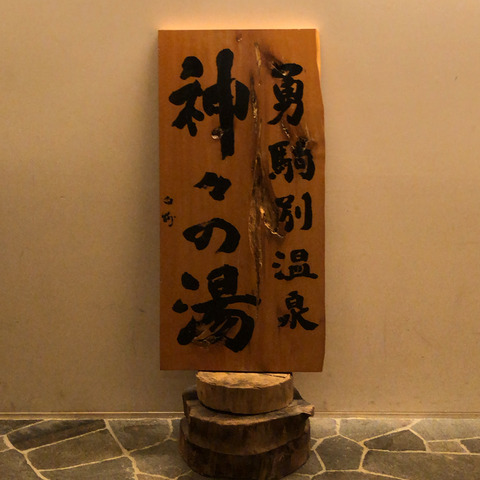 勇駒別温泉
神々の湯